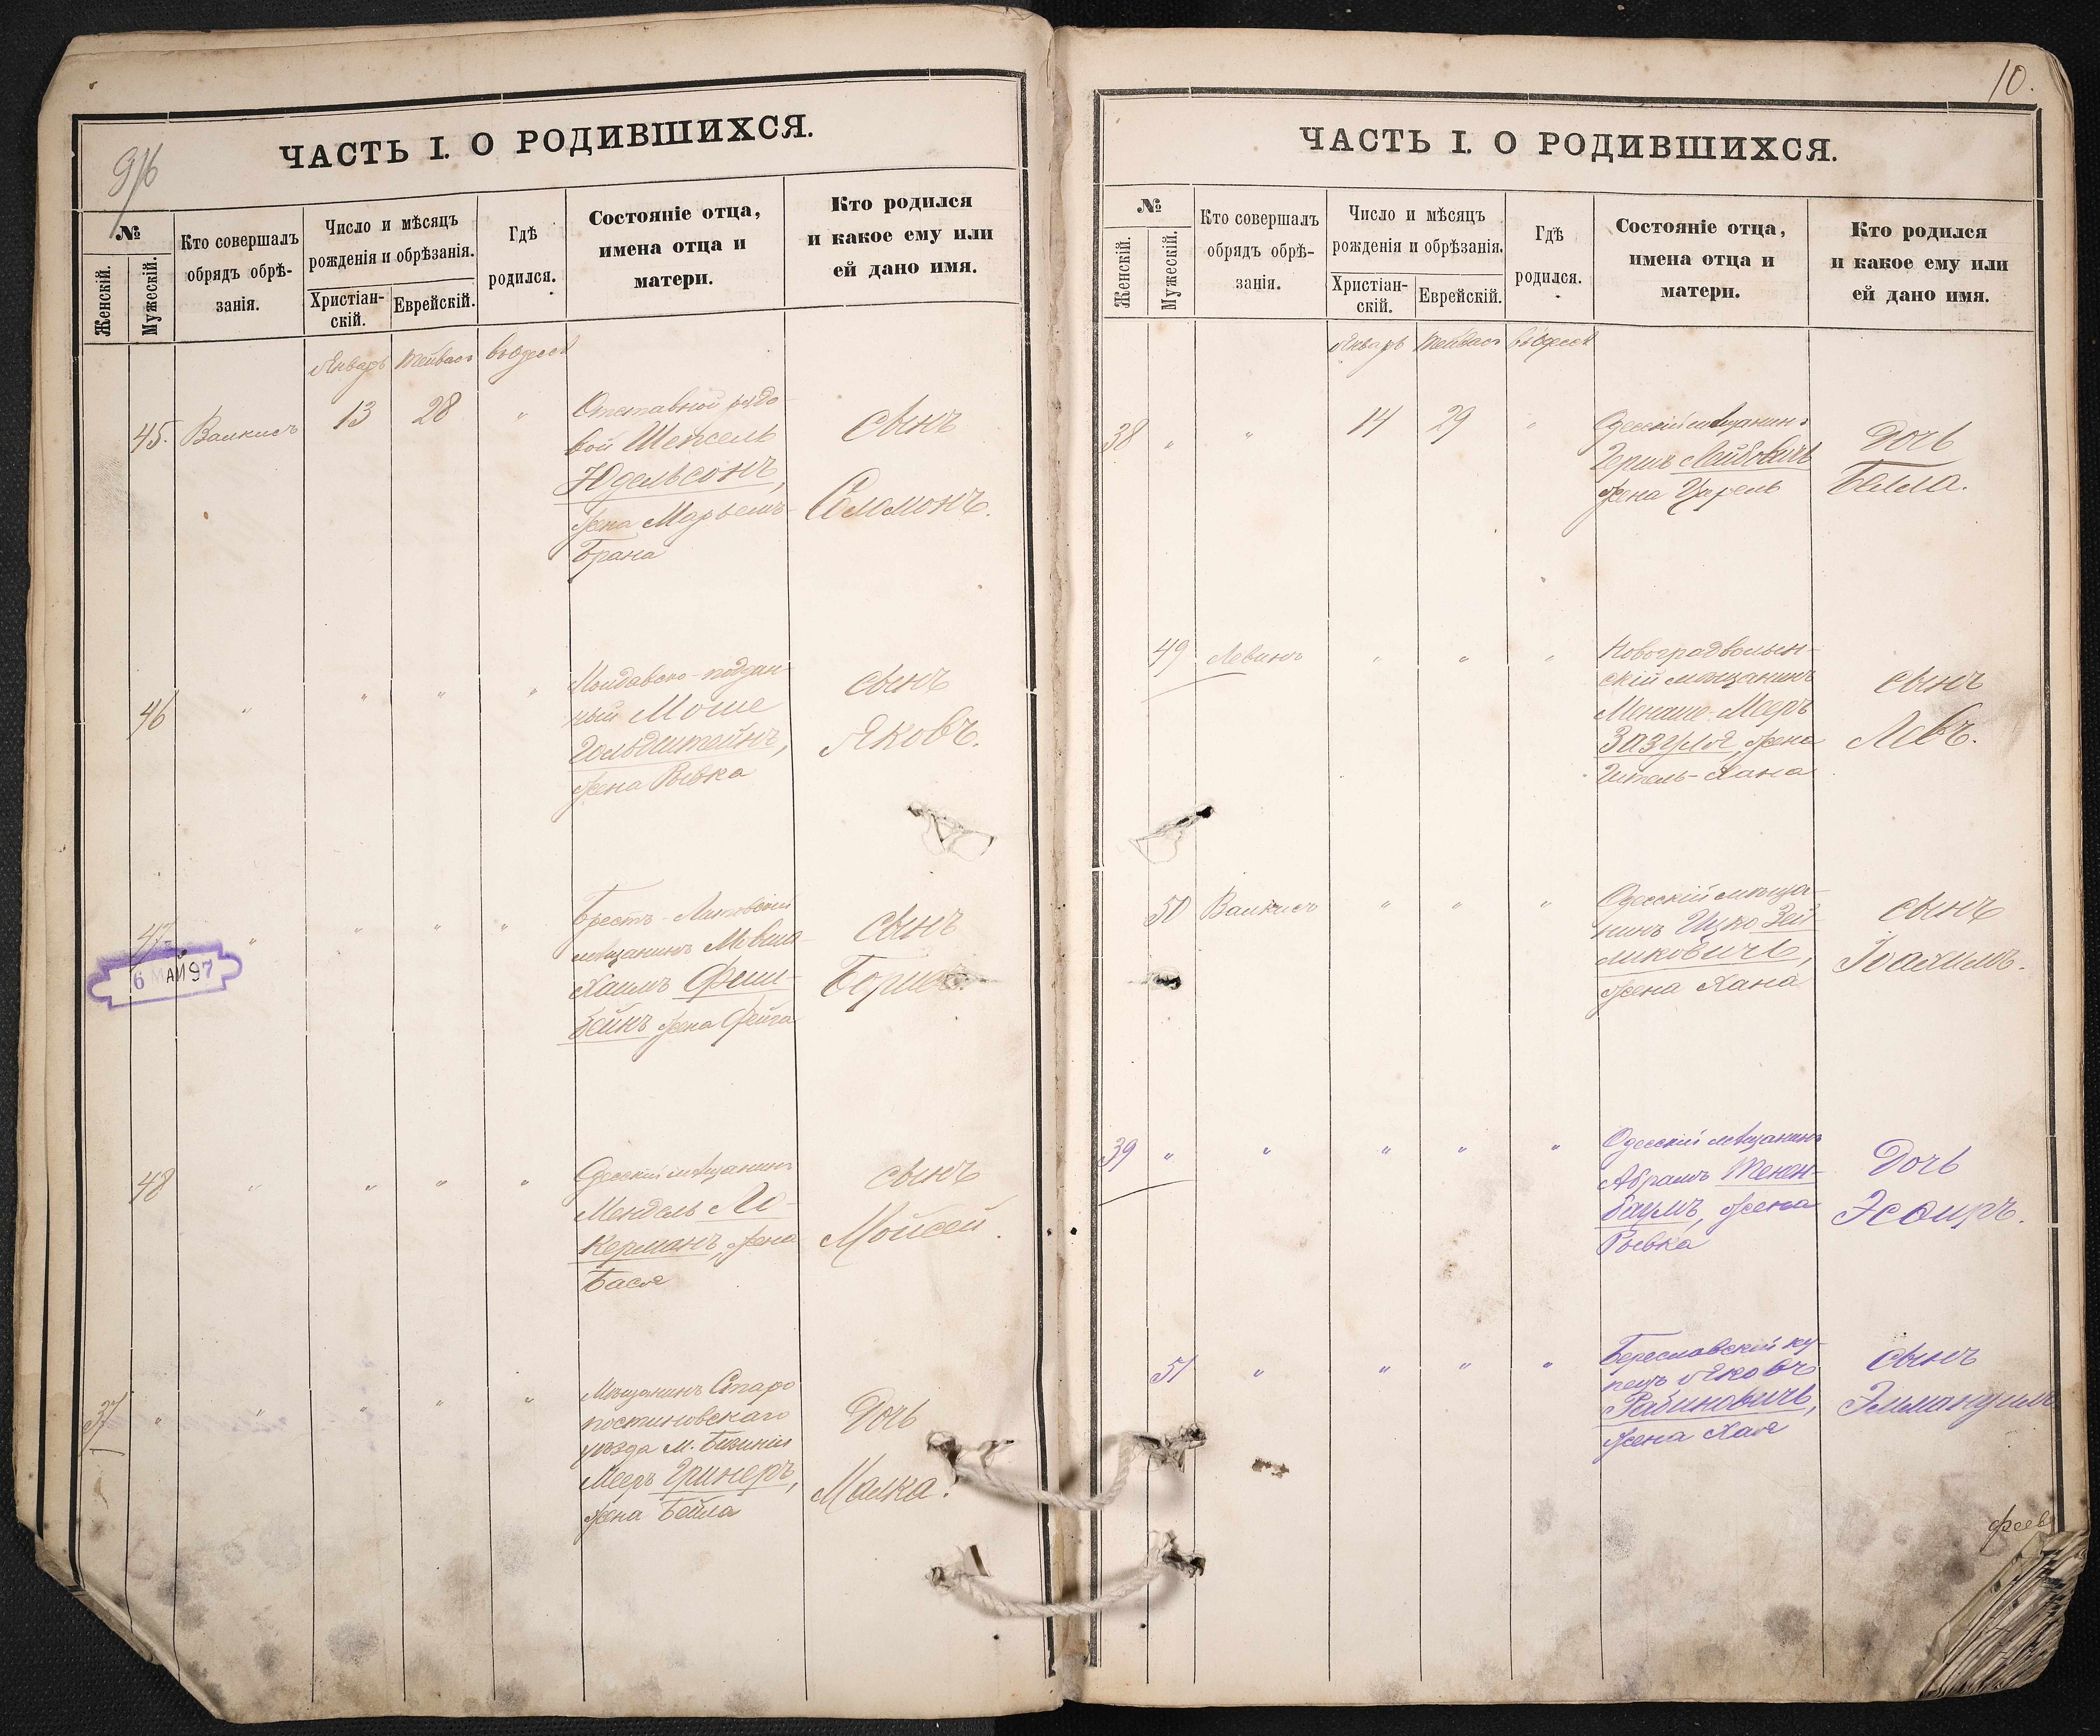 9/16
ЧАСТЬ I. О РОДИВШИХСЯ.
№
Женскій.
Мужескій.
Кто совершалъ
обрядъ обрѣ-
занія.
Число и мѣсяцъ
рожденія и обрѣзанія.
Христіан-
скій.
Еврейскій.
Гдѣ
родился.
Состояніе отца,
имена отца и
матери.
Кто родился
и какое ему или
ей дано имя.
Январь Тейвасъ въ Одессѣ
45. Валкисъ 13 28 "
Отставной рядо-
вой Шепсель
Юдельсонъ,
жена Марьемъ-
Брана
сынъ
Соломонъ.
46 " " " "
Молдавско-поддан-
ный Моше
Гольдштейнъ,
жена Ривка
сынъ
Яковъ.
47 " " " "
6 МАЙ 97
Брестъ-Литовскій
мѣщанинъ Мовша-
Хаимъ Фиш-
бейнъ жена Фейга
сынъ
Борисъ.
48 " " " "
Одесскій мѣщанинъ
Мендель Ли-
керманъ, жена
Бася
сынъ
Мойсей.
37 " " " " "
Мѣщанинъ Старо
костиновскаго
уѣзда м.
Мееръ Гринеръ,
жена Бейла
Дочь
Малка.
10.
ЧАСТЬ I. О РОДИВШИХСЯ.
№
Женскій.
Мужескій.
Кто совершалъ
обрядъ обрѣ-
занія.
Число и мѣсяцъ
рожденія и обрѣзанія.
Христіан-
скій.
Еврейскій.
Гдѣ
родился.
Состояніе отца,
имена отца и
матери.
Кто родился
и какое ему или
ей дано имя.
Январь Тейвасъ въ Одессѣ
38 " " 14 29 "
Одесскій мѣщанинъ
Гершъ Лейбовичъ
жена Цирель
Дочь
Белла.
49 Левинъ " " "
Новоградволын-
скій мѣщанинъ
Менаше-Мееръ
Зазуля, жена
Гитель-Хана
сынъ
Левъ.
50 Валкисъ " " "
Одесскій мѣща-
нинъ Ицко Зей-
ликовичъ,
жена Хана
сынъ
Іоахимъ.
39 " " " " "
Одесскій мѣщанинъ
Абрамъ Тенен-
баумъ, жена
Ривка
Дочь
Эсѳирь.
51 " " " "
Береславскій ку-
пецъ Яковъ
Рабиновичъ,
жена Хая
сынъ
Эммануилъ